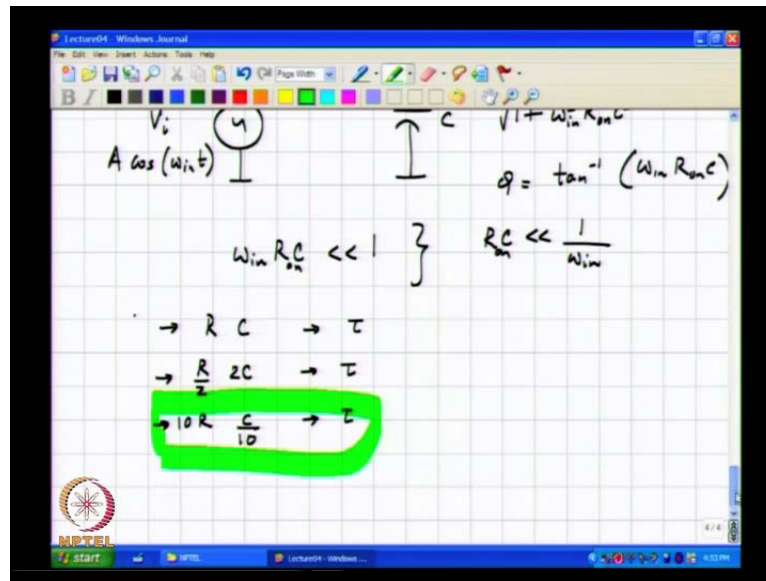 Lecture04 - Windows Journal
File Edit View Insert Actions Tools Help
Page Width
B I
Vi
A cos(ω_in t)
C
√1 + ω_in² R_on C
φ = tan⁻¹ (ω_in R_on C)
ω_in R_on C << 1 } R_on C << 1/ω_in
→ R C → τ
→ R/2 2C → τ
→ 10R C/10 → τ
4/4
NPTEL
start NPTEL Lecture04 - Windows ... 4:53 PM